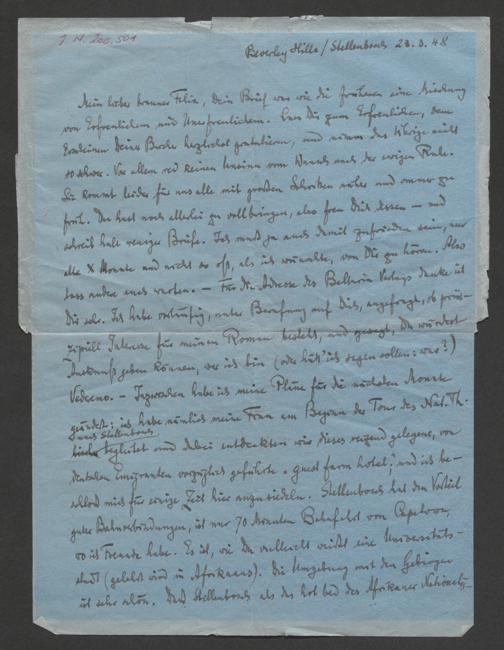 J. N. 200.501
Beverley Hills / Stellenbosch 23.3.48
Mein lieber braver Felix, Dein Brief war wie die früheren eine Mischung
von Erfreulichem und Unerfreulichem. Lass Dir zum Erfreulichen, dem
Erscheinen Deines Buches herzlichst gratulieren, und nimm das Übrige nicht
so schwer. Vor allem red keinen Unsinn vom Wunsch nach der ewigen Ruhe.
Sie kommt leider für uns alle mit großen Schritten näher und immer zu
früh. Du hast noch allerlei zu vollbringen, also freu Dich dessen — und
schreib halt weniger Briefe. Ich muß ja auch damit zufrieden sein, nur
alle X Monate und nicht so oft, als ich wünschte, von Dir zu hören. Also
lass andere auch warten. — Für die Adresse des Verlags danke ich
Dir sehr. Ich habe vorläufig, unter Berufung auf Dich, angefragt, ob prinzipiell
Interesse für meinen Roman besteht, und gesagt, Du würdest
Auskunft geben können, wer ich bin (oder hätt' ich sagen sollen: was?)
Vederemo. — Inzwischen habe ich meine Pläne für die nächsten Monate
geändert; ich habe nämlich meine Frau am Beginn der Tour des Nat. Th.
nach Stellenbosch
begleitet und dabei entdeckten wir dieses reizend gelegene, von
deutschen Emigranten vorzüglich geführte "guest farm hotel," und ich be-
schloß mich für einige Zeit hier anzusiedeln. Stellenbosch hat den Vorteil
guter Bahnverbindungen, ist nur 70 Minuten Bahnfahrt von Capetown,
wo ich Freunde habe. Es ist, wie Du vielleicht weißt eine Universitäts-
stadt (gelehrt wird in Afrikaans). Die Umgebung mit den Gebirgen
ist sehr schön. Daß Stellenbosch als das hot bed des Afrikaner Nationali-